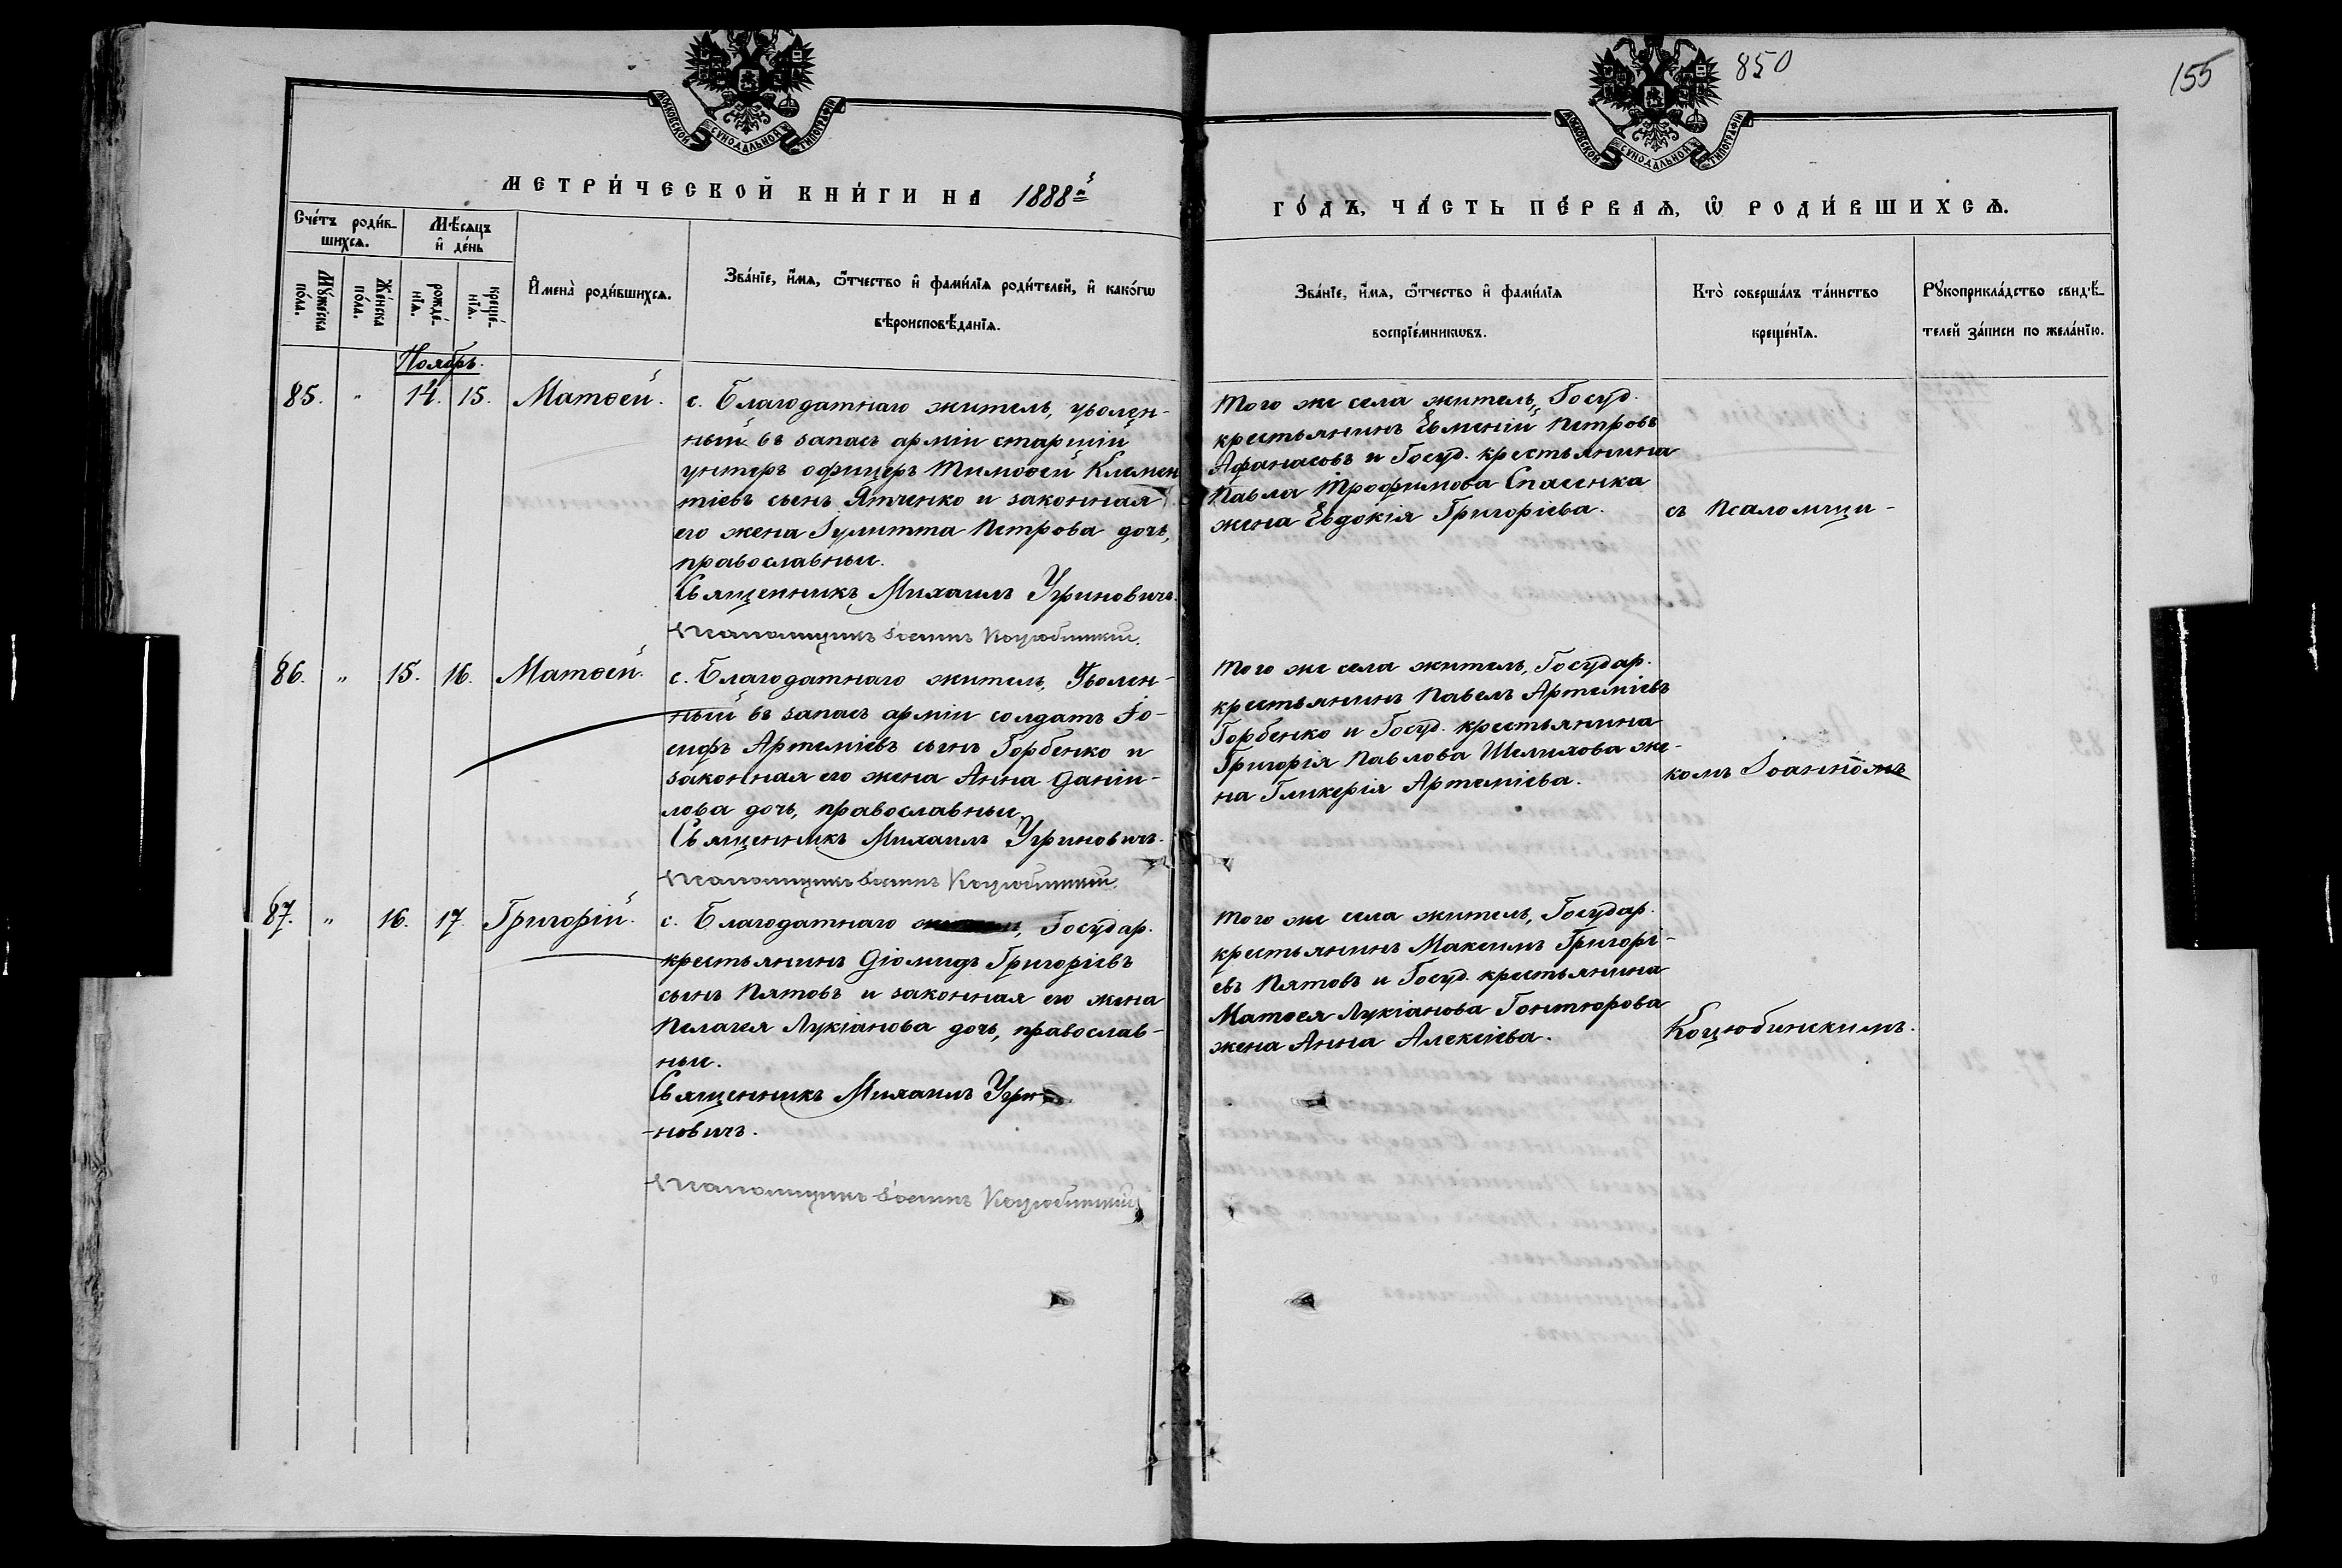 850
155
МОСКОВСКОЙ СѴНОДАЛЬНОЙ ТИПОГРАФІИ
МОСКОВСКОЙ СѴНОДАЛЬНОЙ ТИПОГРАФІИ
МЕТРИ́ЧЕСКОЙ КНИ́ГИ НА 1888й
ГО́ДЪ, ЧА́СТЬ ПЕ́РВАѦ, Ѡ РОДИ́ВШИХСѦ.
Сче́тъ роди́в-
шихсѧ.
Мѣ́сѧцъ
и҆ де́нь
Мꙋ́жеска
по́ла.
Же́нска
по́ла.
рожде́-
нїѧ.
креще́-
нїѧ.
И҆мена̀ роди́вшихсѧ.
Зва́нїе, и҆́мѧ, ѻ҆́тчество и҆ фами́лїѧ роди́телей, и҆ како́гѡ
вѣроисповѣ́данїѧ.
Зва́нїе, и҆́мѧ, ѻ҆́тчество и҆ фами́лїѧ
воспрїе́мникѡвъ.
Кто̀ соверша́лъ та́инство
креще́нїѧ.
Рꙋкоприкла́дство свидѣ́-
телей за́писи по жела́нїю.
Ноябрь.
85. " 14. 15. Матѳей.
с. Благодатнаго житель, уволен-
ный въ запасъ арміи старшій
унтеръ офицеръ Тимоѳей Клемен
тіевъ сынъ Ятченко и законная
его жена Іулитта Петрова дочь,
православные.
Священникъ Михаилъ Угриновичъ.
Псаломщикъ Іоаннъ Коцюбинскій.
Того же села житель, Госуд.
крестьянинъ Евменій Петровъ
Афанасовъ и Госуд. крестьянина
Павла Трофимова Спасенка
жена Евдокія Григоріева.
съ Псаломщи-
86. " 15. 16. Матѳей.
с. Благодатнаго житель, Уволен-
ный въ запасъ арміи солдатъ Іо-
сифъ Артеміевъ сынъ Горбенко и
законная его жена Анна Даніи-
лова дочь, православные
Священникъ Михаилъ Угриновичъ.
Псаломщикъ Іоаннъ Коцюбинскій.
Того же села житель, Государ.
крестьянинъ Павелъ Артеміевъ
Горбенко и Госуд. крестьянина
Григорія Павлова Шелихова же-
на Гликерія Артеміева.
комъ Іоанномъ
87. " 16. 17. Григорій.
с. Благодатнаго Государ.
крестьянинъ Діомидъ Григоріевъ
сынъ Пятовъ и законная его жена
Пелагея Лукіанова дочь, православ-
ные.
Священникъ Михаилъ Угри
-новичъ.
Псаломщикъ Іоаннъ Коцюбинскій
Того же села житель, Государ.
крестьянинъ Максимъ Григорі-
евъ Пятовъ и Госуд. крестьянина
Матѳея Лукіанова Гонтюрова
жена Анна Алексіева.
Коцюбинскимъ.